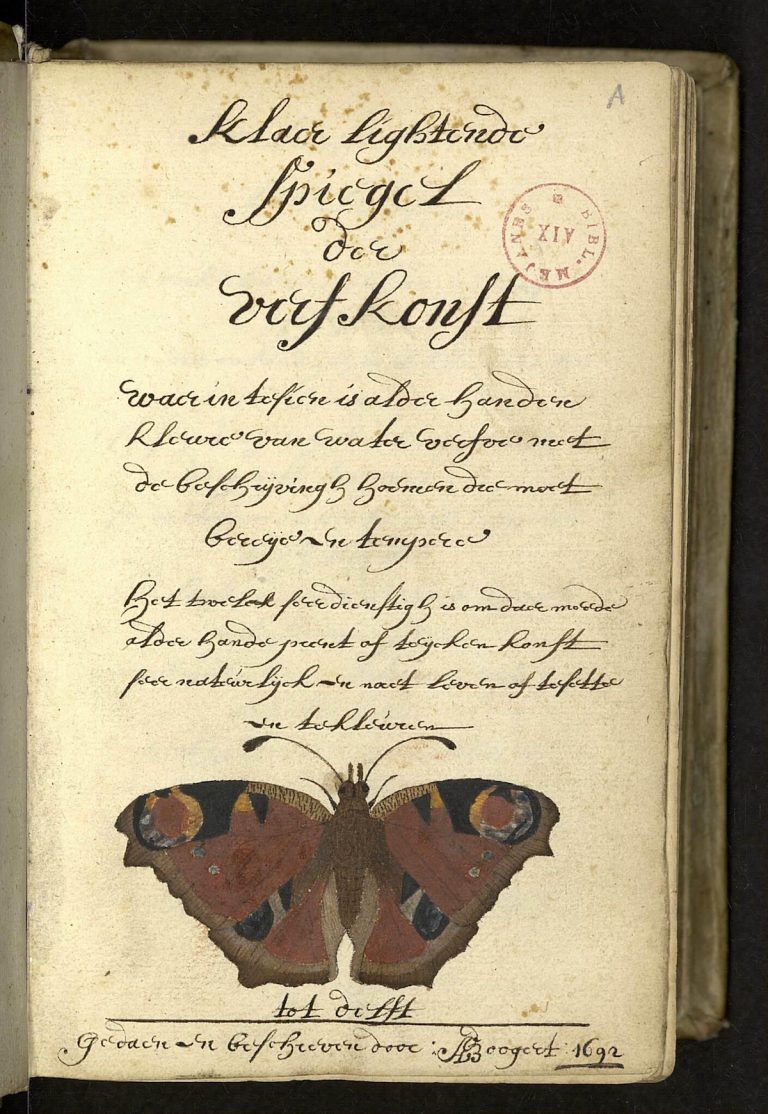 A
Klaer lightende
Spiegel
der
verfkonst
BIBL. MEJANES
AIX
waer in tesien is alder handen
kleure van water verfve met
de beschrijvingh hoemen die moet
bereije en tempere
Het twelck seer dienstigh is om daer meede
alder hande prent of teijcken konst
seer natuerlijck en naet leven af tesette
en tekleuren
tot delft
Gedaen en beschreven door: A Boogert: 1692